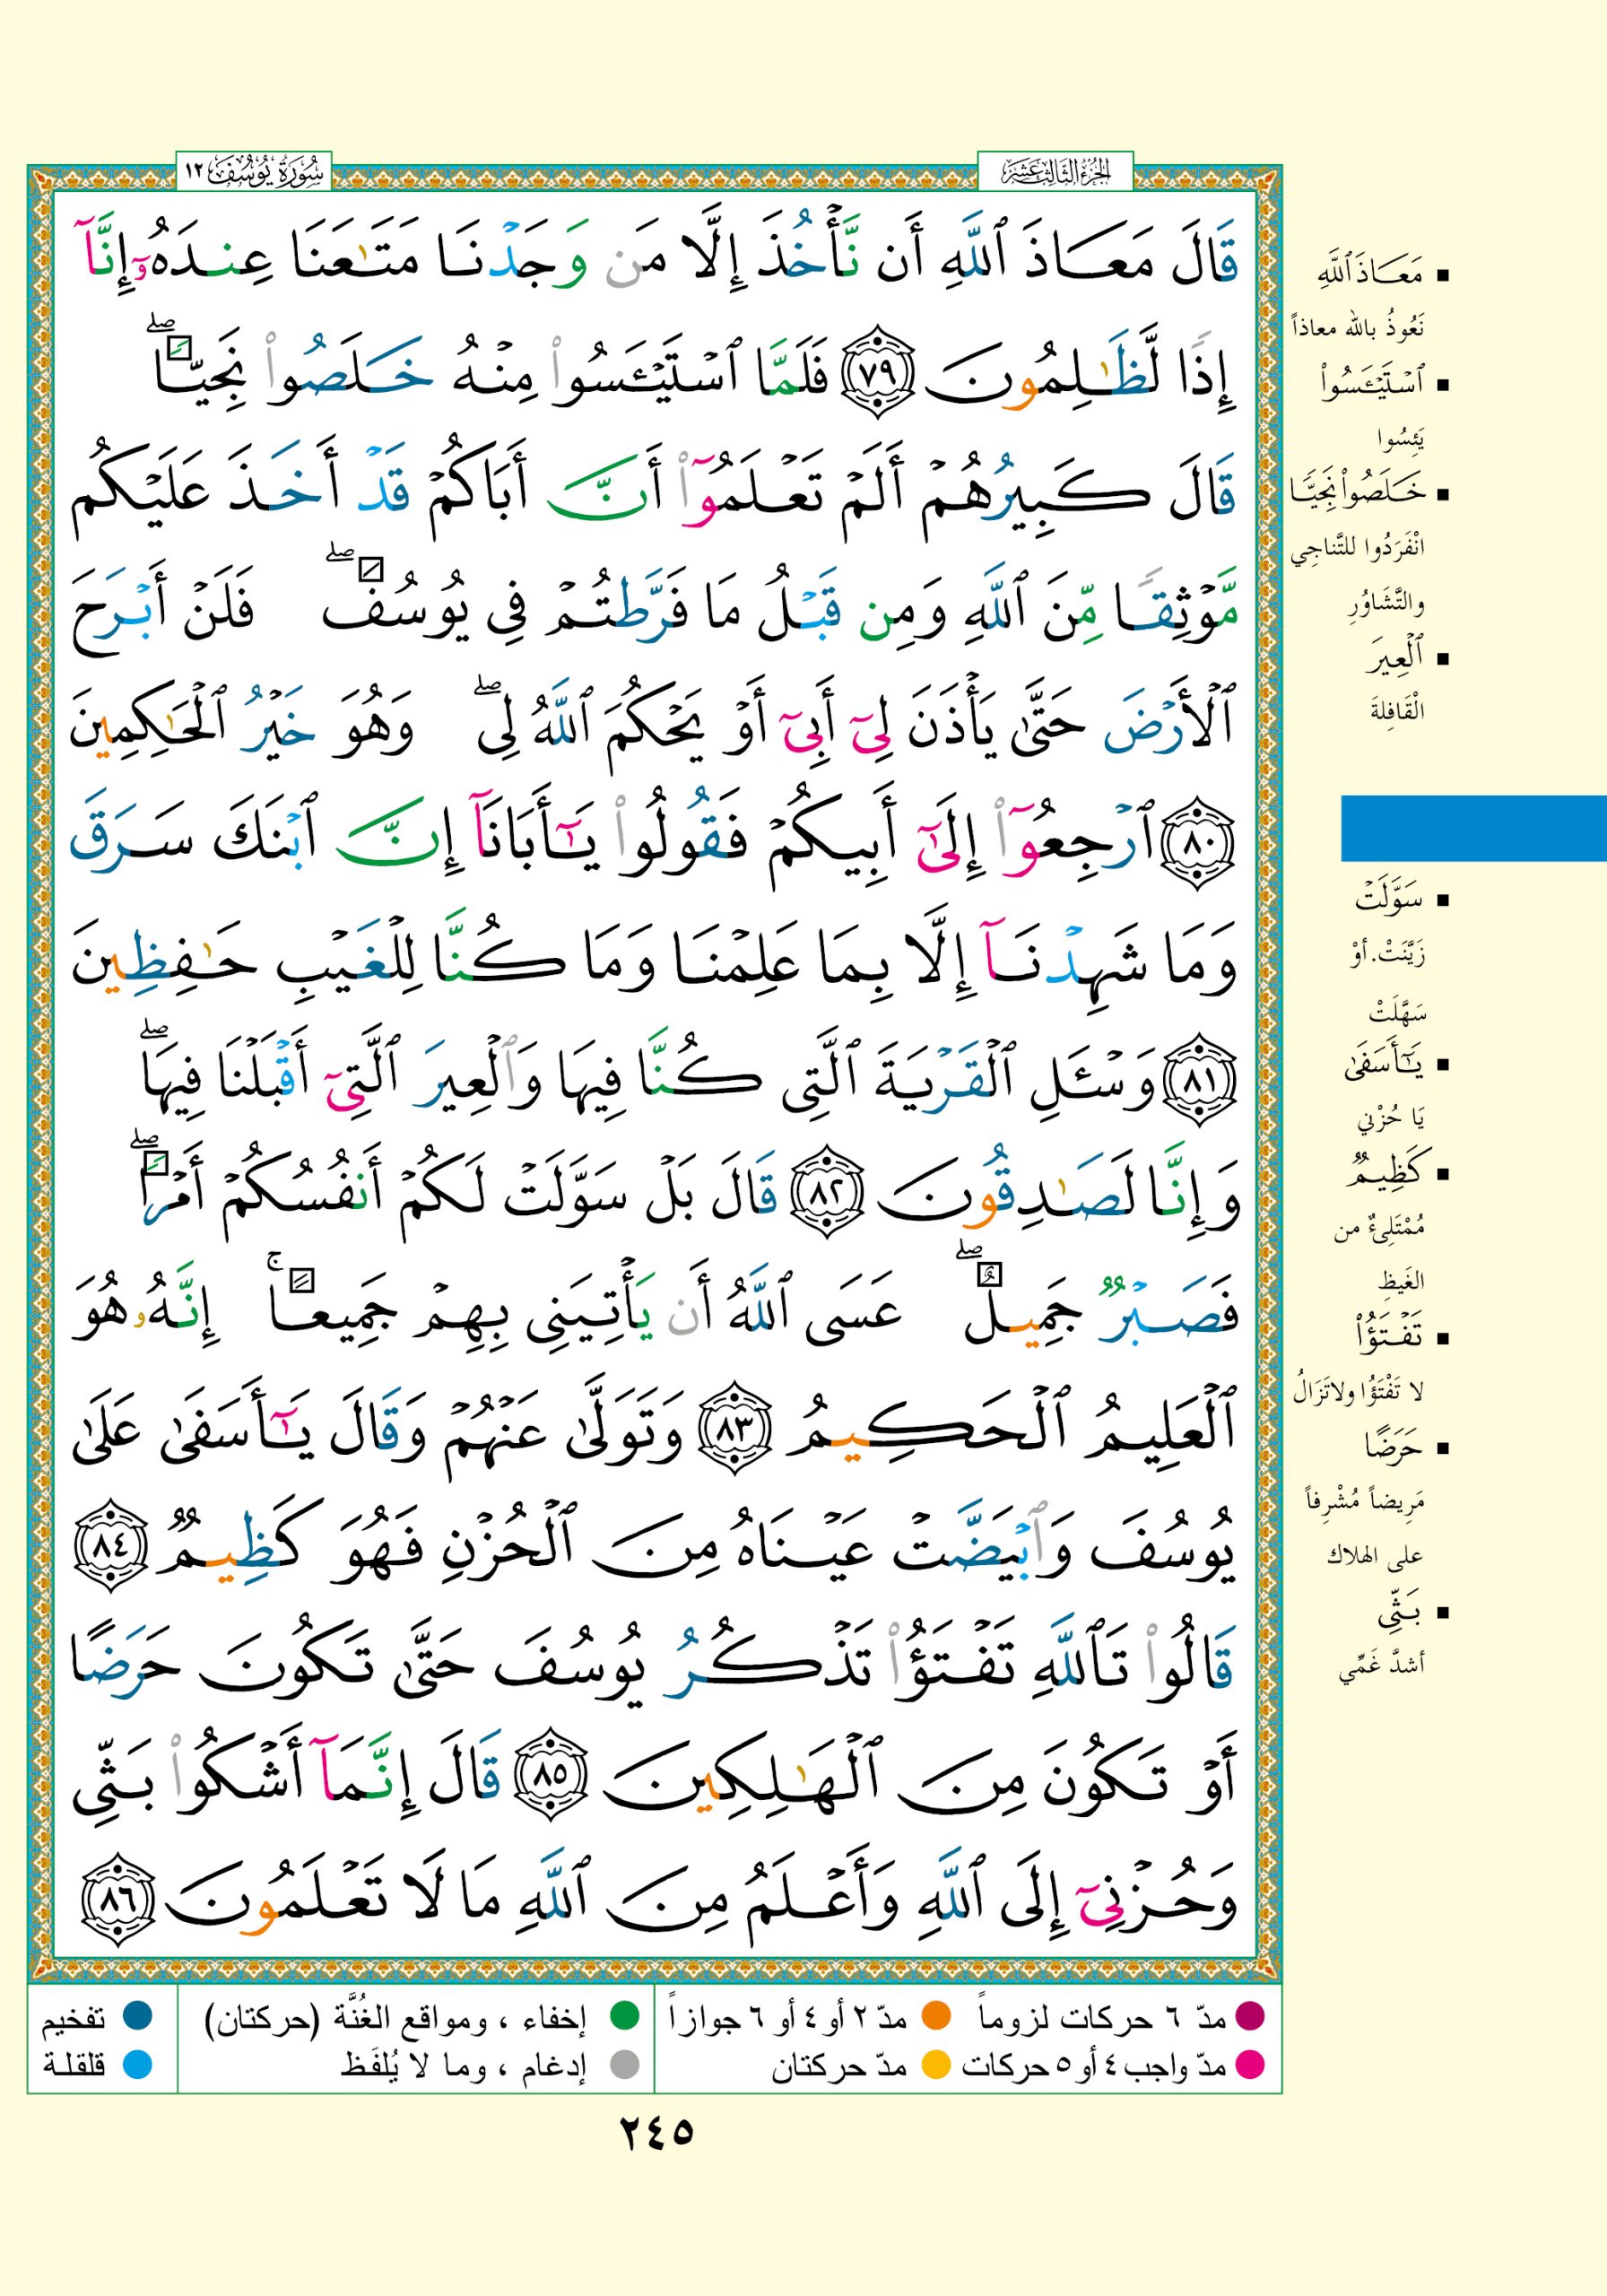 الجزء الثالث عشر
سورة يوسف ١٢
قَالَ مَعَاذَ ٱللَّهِ أَن نَّأْخُذَ إِلَّا مَن وَجَدْنَا مَتَٰعَنَا عِندَهُۥٓ إِنَّآ
إِذًا لَّظَٰلِمُونَ ٧٩ فَلَمَّا ٱسْتَيْـَٔسُوا۟ مِنْهُ خَلَصُوا۟ نَجِيًّا ۖ
قَالَ كَبِيرُهُمْ أَلَمْ تَعْلَمُوٓا۟ أَنَّ أَبَاكُمْ قَدْ أَخَذَ عَلَيْكُم
مَّوْثِقًا مِّنَ ٱللَّهِ وَمِن قَبْلُ مَا فَرَّطتُمْ فِى يُوسُفَ ۖ فَلَنْ أَبْرَحَ
ٱلْأَرْضَ حَتَّىٰ يَأْذَنَ لِىٓ أَبِىٓ أَوْ يَحْكُمَ ٱللَّهُ لِى ۖ وَهُوَ خَيْرُ ٱلْحَٰكِمِينَ
٨٠ ٱرْجِعُوٓا۟ إِلَىٰٓ أَبِيكُمْ فَقُولُوا۟ يَٰٓأَبَانَآ إِنَّ ٱبْنَكَ سَرَقَ
وَمَا شَهِدْنَآ إِلَّا بِمَا عَلِمْنَا وَمَا كُنَّا لِلْغَيْبِ حَٰفِظِينَ
٨١ وَسْـَٔلِ ٱلْقَرْيَةَ ٱلَّتِى كُنَّا فِيهَا وَٱلْعِيرَ ٱلَّتِىٓ أَقْبَلْنَا فِيهَا ۖ
وَإِنَّا لَصَٰدِقُونَ ٨٢ قَالَ بَلْ سَوَّلَتْ لَكُمْ أَنفُسُكُمْ أَمْرًا ۖ
فَصَبْرٌ جَمِيلٌ ۖ عَسَى ٱللَّهُ أَن يَأْتِيَنِى بِهِمْ جَمِيعًا ۚ إِنَّهُۥ هُوَ
ٱلْعَلِيمُ ٱلْحَكِيمُ ٨٣ وَتَوَلَّىٰ عَنْهُمْ وَقَالَ يَٰٓأَسَفَىٰ عَلَىٰ
يُوسُفَ وَٱبْيَضَّتْ عَيْنَاهُ مِنَ ٱلْحُزْنِ فَهُوَ كَظِيمٌ ٨٤
قَالُوا۟ تَٱللَّهِ تَفْتَؤُا۟ تَذْكُرُ يُوسُفَ حَتَّىٰ تَكُونَ حَرَضًا
أَوْ تَكُونَ مِنَ ٱلْهَٰلِكِينَ ٨٥ قَالَ إِنَّمَآ أَشْكُوا۟ بَثِّى
وَحُزْنِىٓ إِلَى ٱللَّهِ وَأَعْلَمُ مِنَ ٱللَّهِ مَا لَا تَعْلَمُونَ ٨٦
▪ مَعَاذَ ٱللَّهِ
نَعُوذُ بالله معاذاً
▪ ٱسْتَيْـَٔسُوا۟
يَئِسُوا
▪ خَلَصُوا۟ نَجِيًّا
انْفَرَدُوا للتَّناجِي
والتَّشَاوُرِ
▪ ٱلْعِيرَ
الْقَافِلةَ
▪ سَوَّلَتْ
زَيَّنَتْ. أوْ
سَهَّلَتْ
▪ يَٰٓأَسَفَىٰ
يَا حُزْني
▪ كَظِيمٌ
مُمْتَلِئٌ من
الغَيظِ
▪ تَفْتَؤُا۟
لا تَفْتَؤُا ولاتَزَالُ
▪ حَرَضًا
مَرِيضاً مُشْرِفاً
على الهلاك
▪ بَثِّى
أشدَّ غَمِّي
مدّ ٦ حركات لزوماً
مدّ ٢ أو ٤ أو ٦ جوازاً
إخفاء ، ومواقع الغُنَّة (حركتان)
تفخيم
مدّ واجب ٤ أو ٥ حركات
مدّ حركتان
إدغام ، وما لا يُلفَظ
قلقلة
٢٤٥